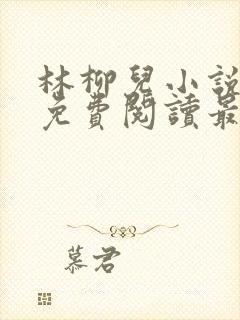 林柳兒小說
免費閱讀最
慕君